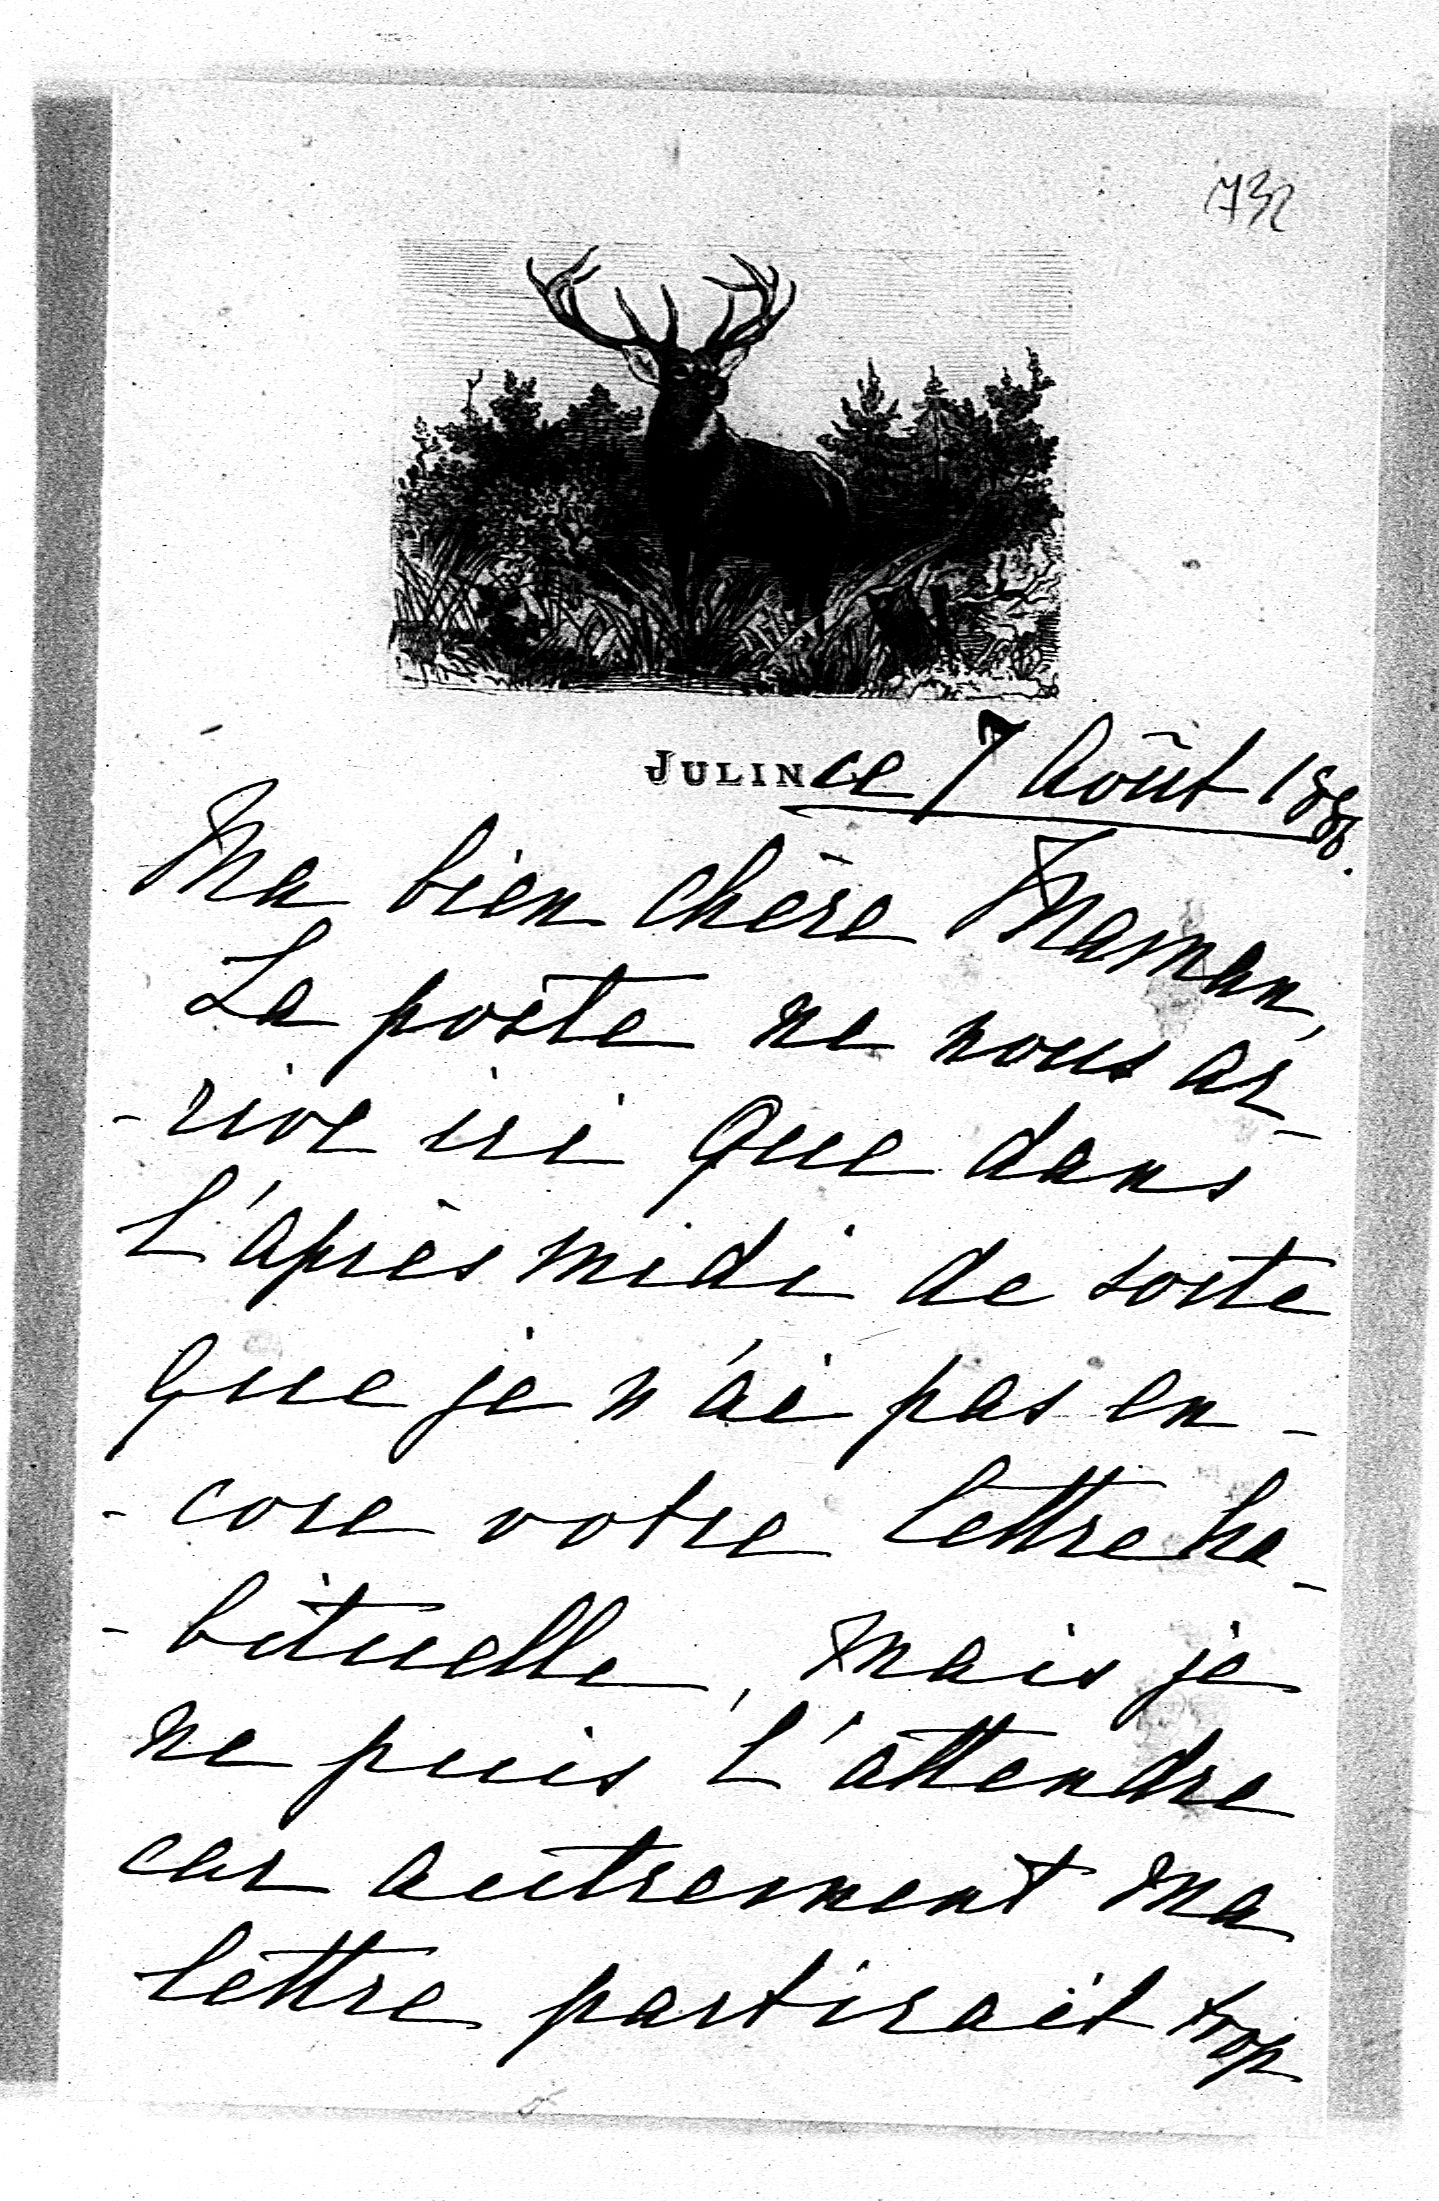 732
JULIN ce 7 Août 1886.
Ma bien chère Maman,
La poste ne nous ar-
-rive ici que dans
l'après midi de sorte
que je n'ai pas en-
-core votre lettre ha-
-bituelle, mais je
ne puis l'attendre
car autrement ma
lettre partirait trop